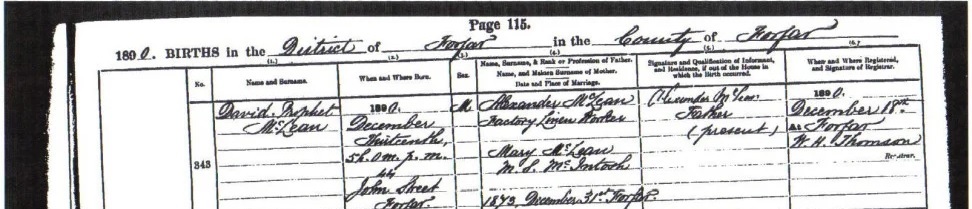 Page 115.
1890. BIRTHS in the District of Forfar in the County of Forfar
(1.) (2.) (3.) (4.) (5.) (6.)
No.
Name and Surname.
When and Where Born.
Sex.
Name, Surname, & Rank or Profession of Father.
Name, and Maiden Surname of Mother.
Date and Place of Marriage.
Signature and Qualification of Informant,
and Residence, if out of the House in
which the Birth occurred.
When and Where Registered,
and Signature of Registrar.
343
David Prophet
McLean
1890.
December
Thirteenth,
5h. 0m. p.m.
John Street
Forfar.
M
Alexander McLean
Factory Linen Worker
Mary McLean
M.S. McIntosh
1873, December 31st Forfar.
Alexander McLean
Father
(present)
1890.
December 18th
At Forfar
W. H. Thomson
Registrar.